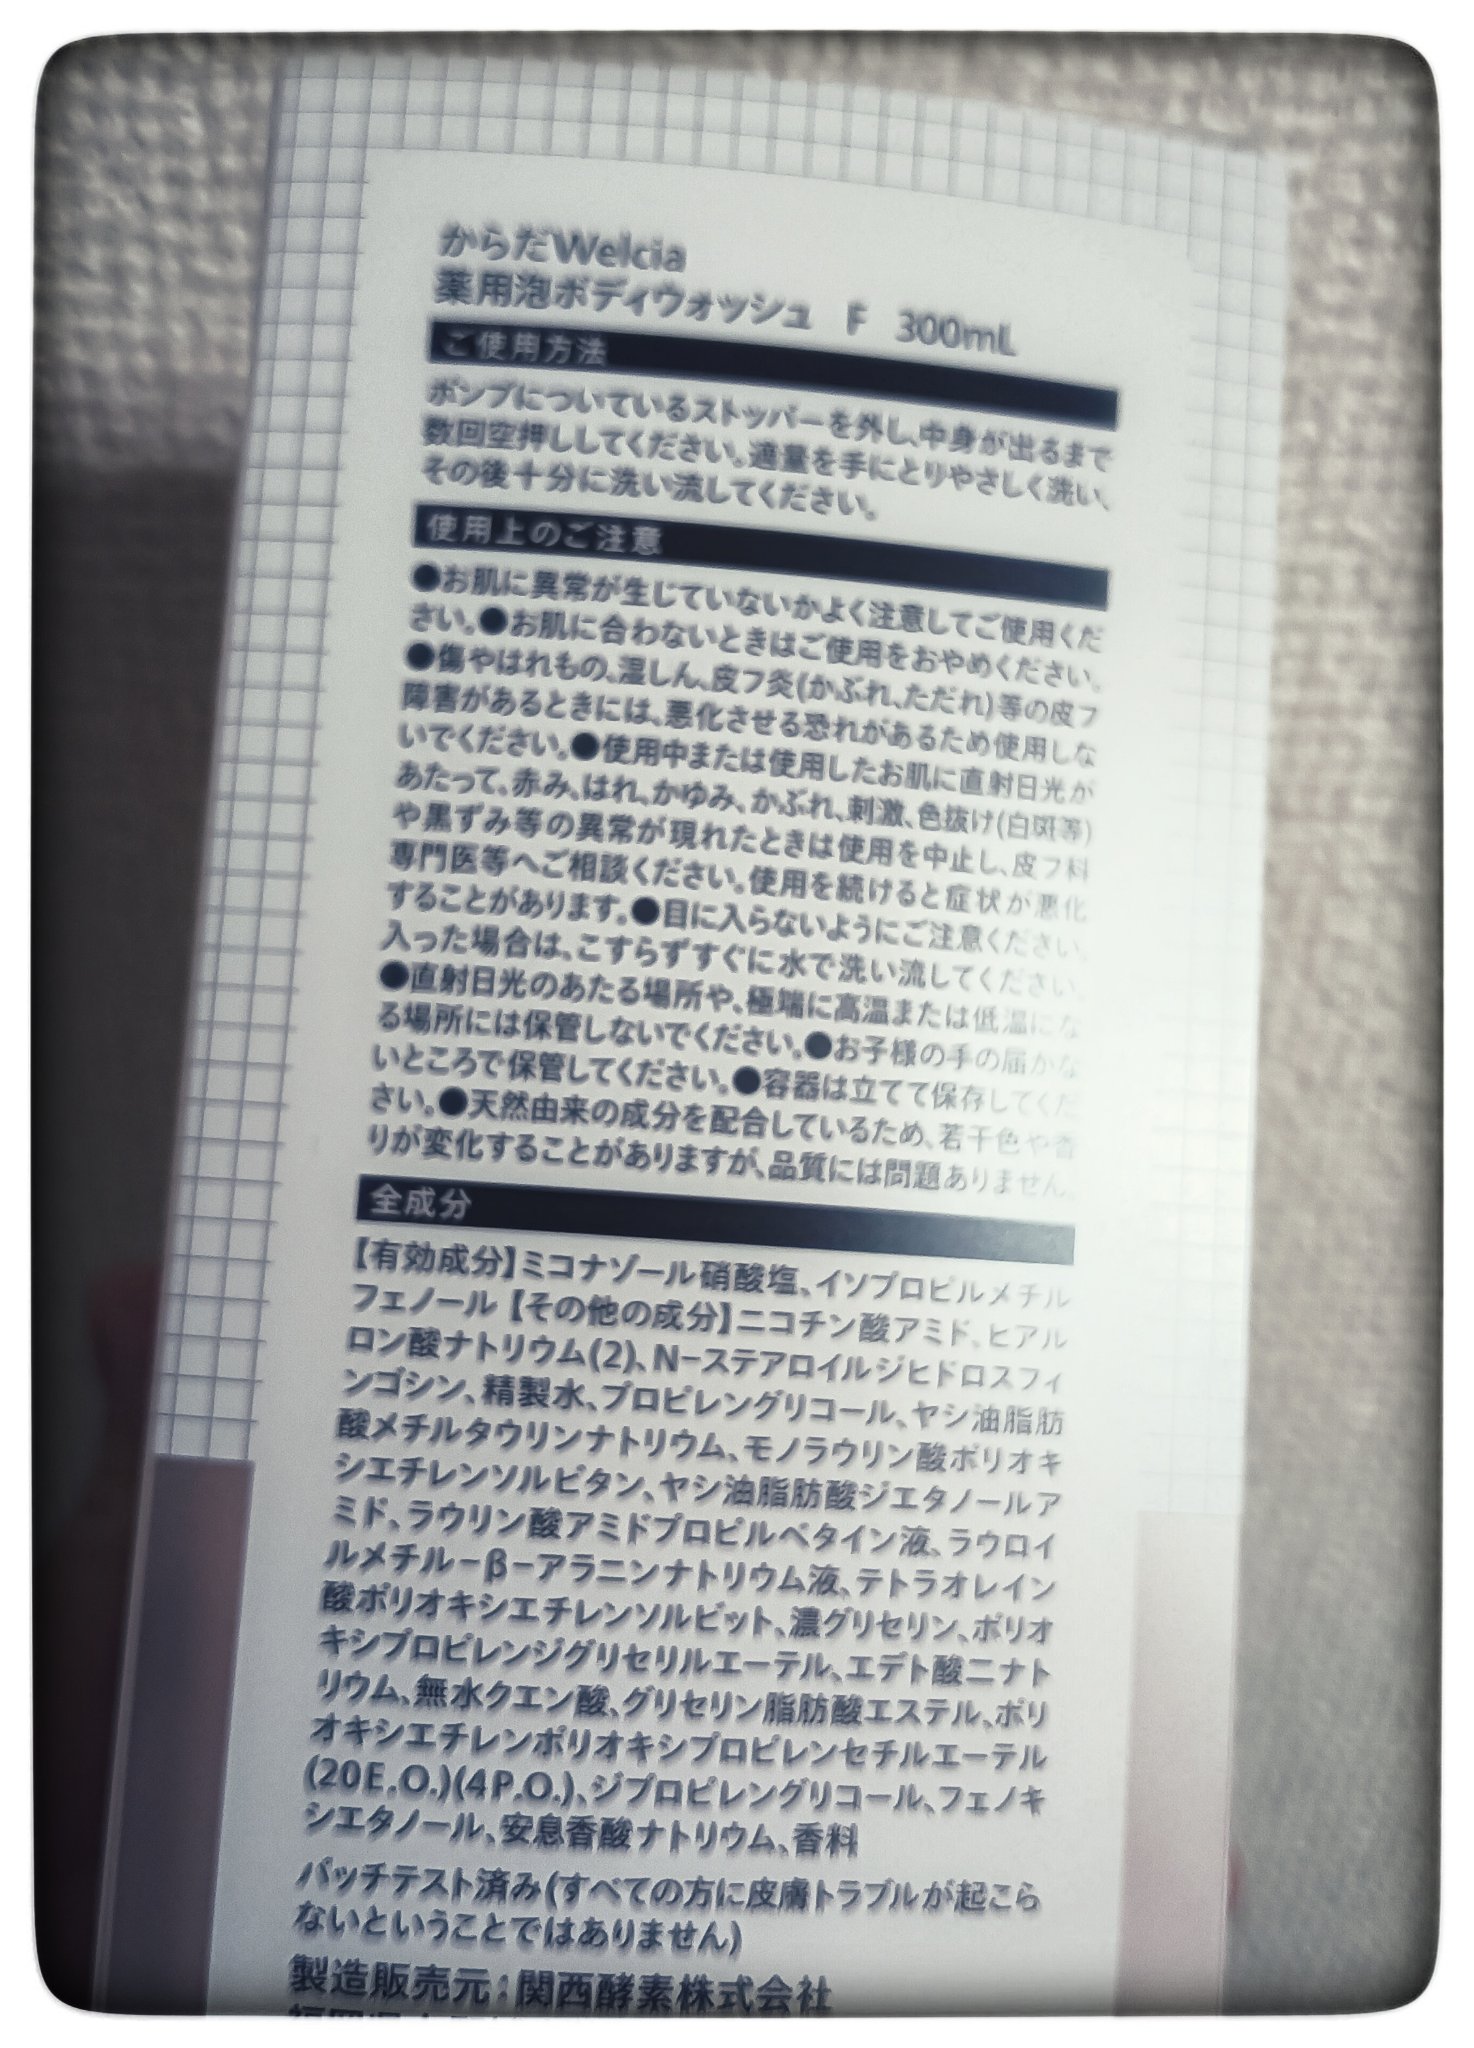 からだWelcia
薬用泡ボディウォッシュ F 300mL
ご使用方法
ポンプについているストッパーを外し、中身が出るまで
数回空押ししてください。適量を手にとりやさしく洗い、
その後十分に洗い流してください。
使用上のご注意
●お肌に異常が生じていないかよく注意してご使用くだ
さい。●お肌に合わないときはご使用をおやめください。
●傷やはれもの、湿しん、皮フ炎(かぶれ、ただれ)等の皮フ
障害があるときには、悪化させる恐れがあるため使用しな
いでください。●使用中または使用したお肌に直射日光が
あたって、赤み、はれ、かゆみ、かぶれ、刺激、色抜け(白斑等)
や黒ずみ等の異常が現れたときは使用を中止し、皮フ科
専門医等へご相談ください。使用を続けると症状が悪化
することがあります。●目に入らないようにご注意ください。
入った場合は、こすらずすぐに水で洗い流してください。
●直射日光のあたる場所や、極端に高温または低温にな
る場所には保管しないでください。●お子様の手の届かな
いところで保管してください。●容器は立てて保存してくだ
さい。●天然由来の成分を配合しているため、若干色や香
りが変化することがありますが、品質には問題ありません。
全成分
【有効成分】ミコナゾール硝酸塩、イソプロピルメチル
フェノール【その他の成分】ニコチン酸アミド、ヒアル
ロン酸ナトリウム(2)、N-ステアロイルジヒドロスフィ
ンゴシン、精製水、プロピレングリコール、ヤシ油脂肪
酸メチルタウリンナトリウム、モノラウリン酸ポリオキ
シエチレンソルビタン、ヤシ油脂肪酸ジエタノールア
ミド、ラウリン酸アミドプロピルベタイン液、ラウロイ
ルメチル-β-アラニンナトリウム液、テトラオレイン
酸ポリオキシエチレンソルビット、濃グリセリン、ポリオ
キシプロピレンジグリセリルエーテル、エデト酸二ナト
リウム、無水クエン酸、グリセリン脂肪酸エステル、ポリ
オキシエチレンポリオキシプロピレンセチルエーテル
(20E.O.)(4P.O.)、ジプロピレングリコール、フェノキ
シエタノール、安息香酸ナトリウム、香料
パッチテスト済み(すべての方に皮膚トラブルが起こら
ないということではありません)
製造販売元:関西酵素株式会社